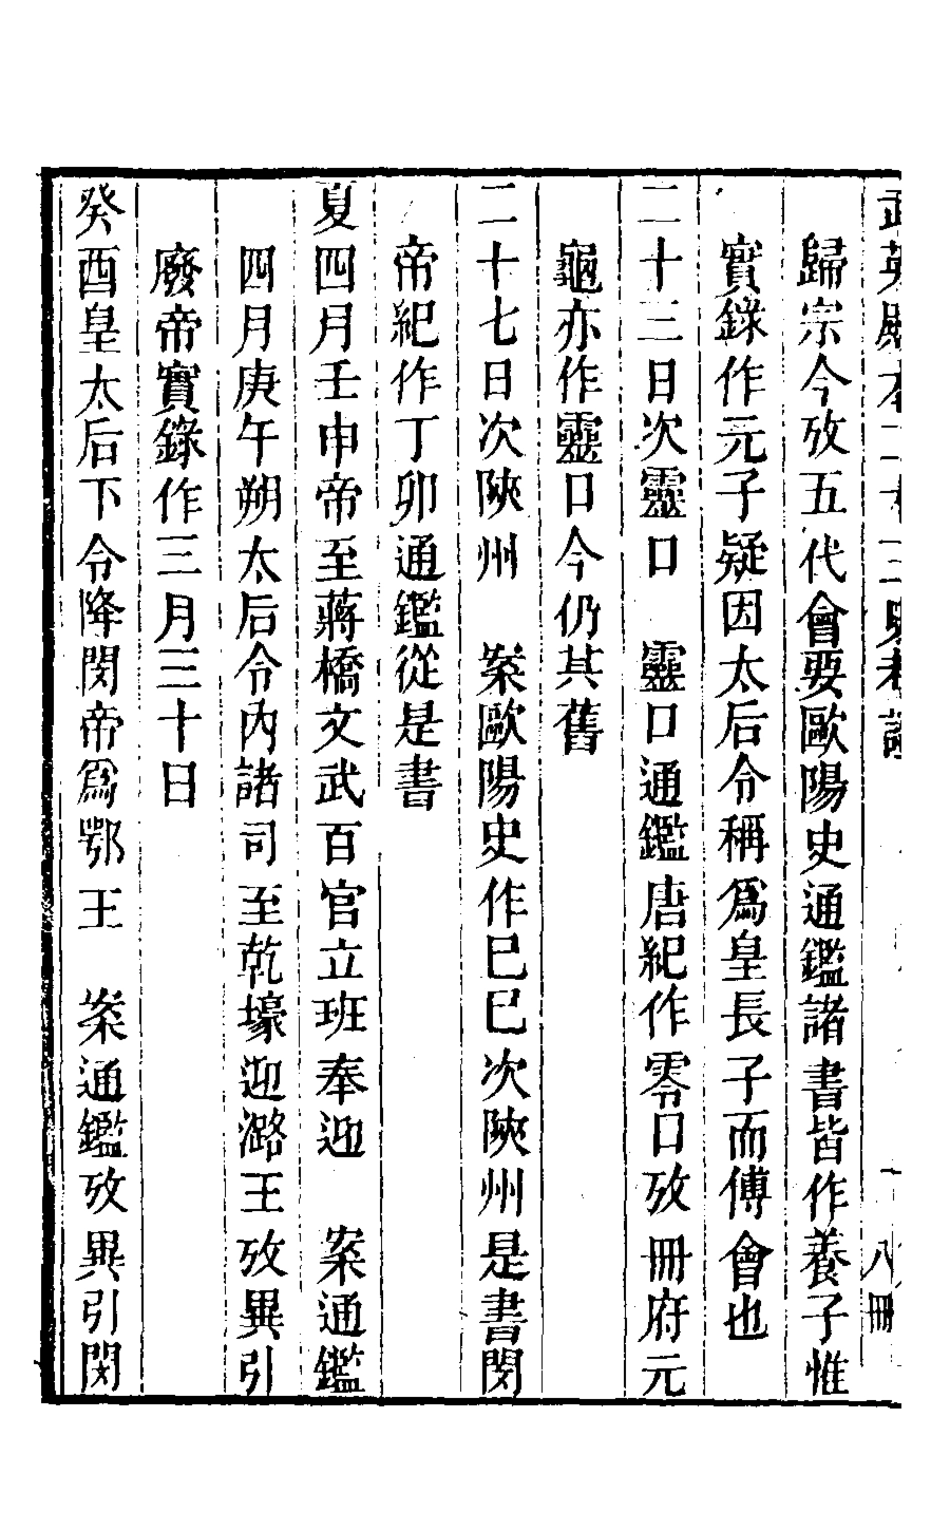 歸宗今攷五代會要歐陽史通鑑諸書皆作養子惟
實錄作元子疑因太后令稱爲皇長子而傅會也
二十三日次靈口　靈口通鑑唐紀作零口攷冊府元
龜亦作靈口今仍其舊
二十七日次陝州　案歐陽史作巳巳次陝州是書閔
帝紀作丁卯通鑑從是書
夏四月壬申帝至蔣橋文武百官立班奉迎　案通鑑
四月庚午朔太后令內諸司至乾壕迎潞王攷異引
廢帝實錄作三月三十日
癸酉皇太后下令降閔帝爲鄂王　案通鑑攷異引閔
八冊